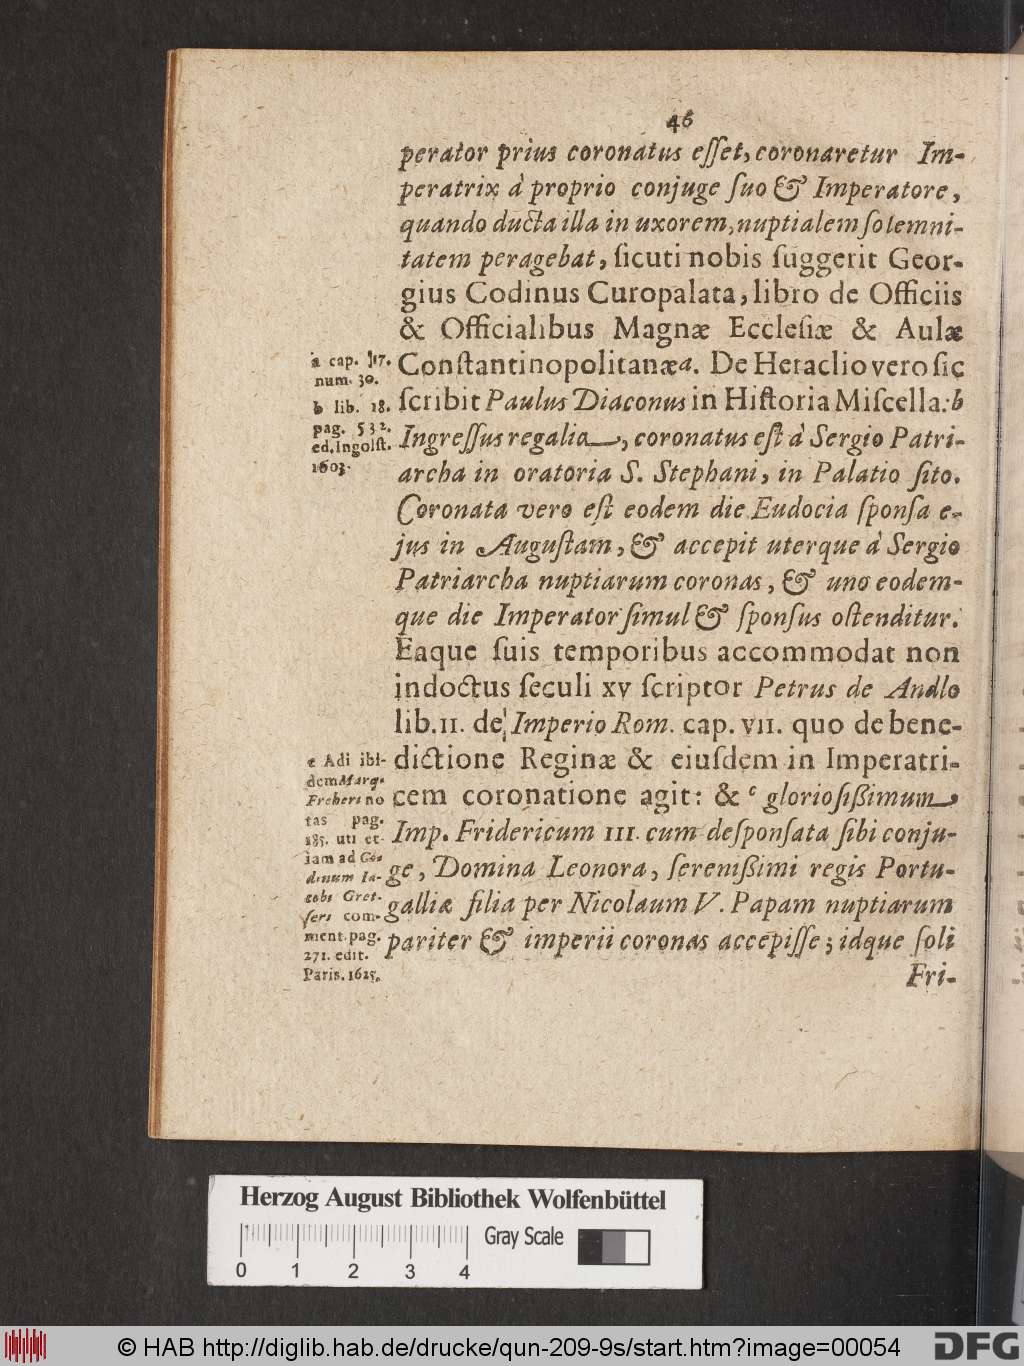 46
perator prius coronatus eſſet, coronaretur Im-
peratrix à proprio conjuge ſuo & Imperatore,
quando ducta illa in uxorem, nuptialem ſolemni-
tatem peragebat, ſicuti nobis ſuggerit Geor-
gius Codinus Curopalata, libro de Officiis
& Officialibus Magnæ Eccleſiæ & Aulæ
Conſtantinopolitanæ a. De Heraclio vero ſic
ſcribit Paulus Diaconus in Hiſtoria Miſcella: b
Ingreſſus regalia, coronatus eſt à Sergio Patri-
archa in oratoria S. Stephani, in Palatio ſito.
Coronata vero eſt eodem die Eudocia ſponſa e-
jus in Auguſtam, & accepit uterque à Sergio
Patriarcha nuptiarum coronas, & uno eodem-
que die Imperator ſimul & ſponſus oſtenditur.
Eaque ſuis temporibus accommodat non
indoctus ſeculi xv ſcriptor Petrus de Andlo
lib. II. de Imperio Rom. cap. VII. quo de bene-
dictione Reginæ & eiuſdem in Imperatri-
cem coronatione agit: & c glorioſißimum
Imp. Fridericum III. cum deſponſata ſibi conju-
ge, Domina Leonora, ſerenißimi regis Portu-
galliæ filia per Nicolaum V. Papam nuptiarum
pariter & imperii coronas accepiſſe; idque ſoli
Fri-
a cap. 17.
num. 30.
b lib. 18.
pag. 532.
ed. Ingolſt.
1603.
c Adi ibi-
dem Marq.
Freheri no
tas pag.
185. uti et-
iam ad Co-
dinum Ja-
cobi Gret-
ſeri com-
ment. pag.
271. edit.
Paris. 1625.
Herzog August Bibliothek Wolfenbüttel
Gray Scale
0 1 2 3 4
© HAB http://diglib.hab.de/drucke/qun-209-9s/start.htm?image=00054
DFG